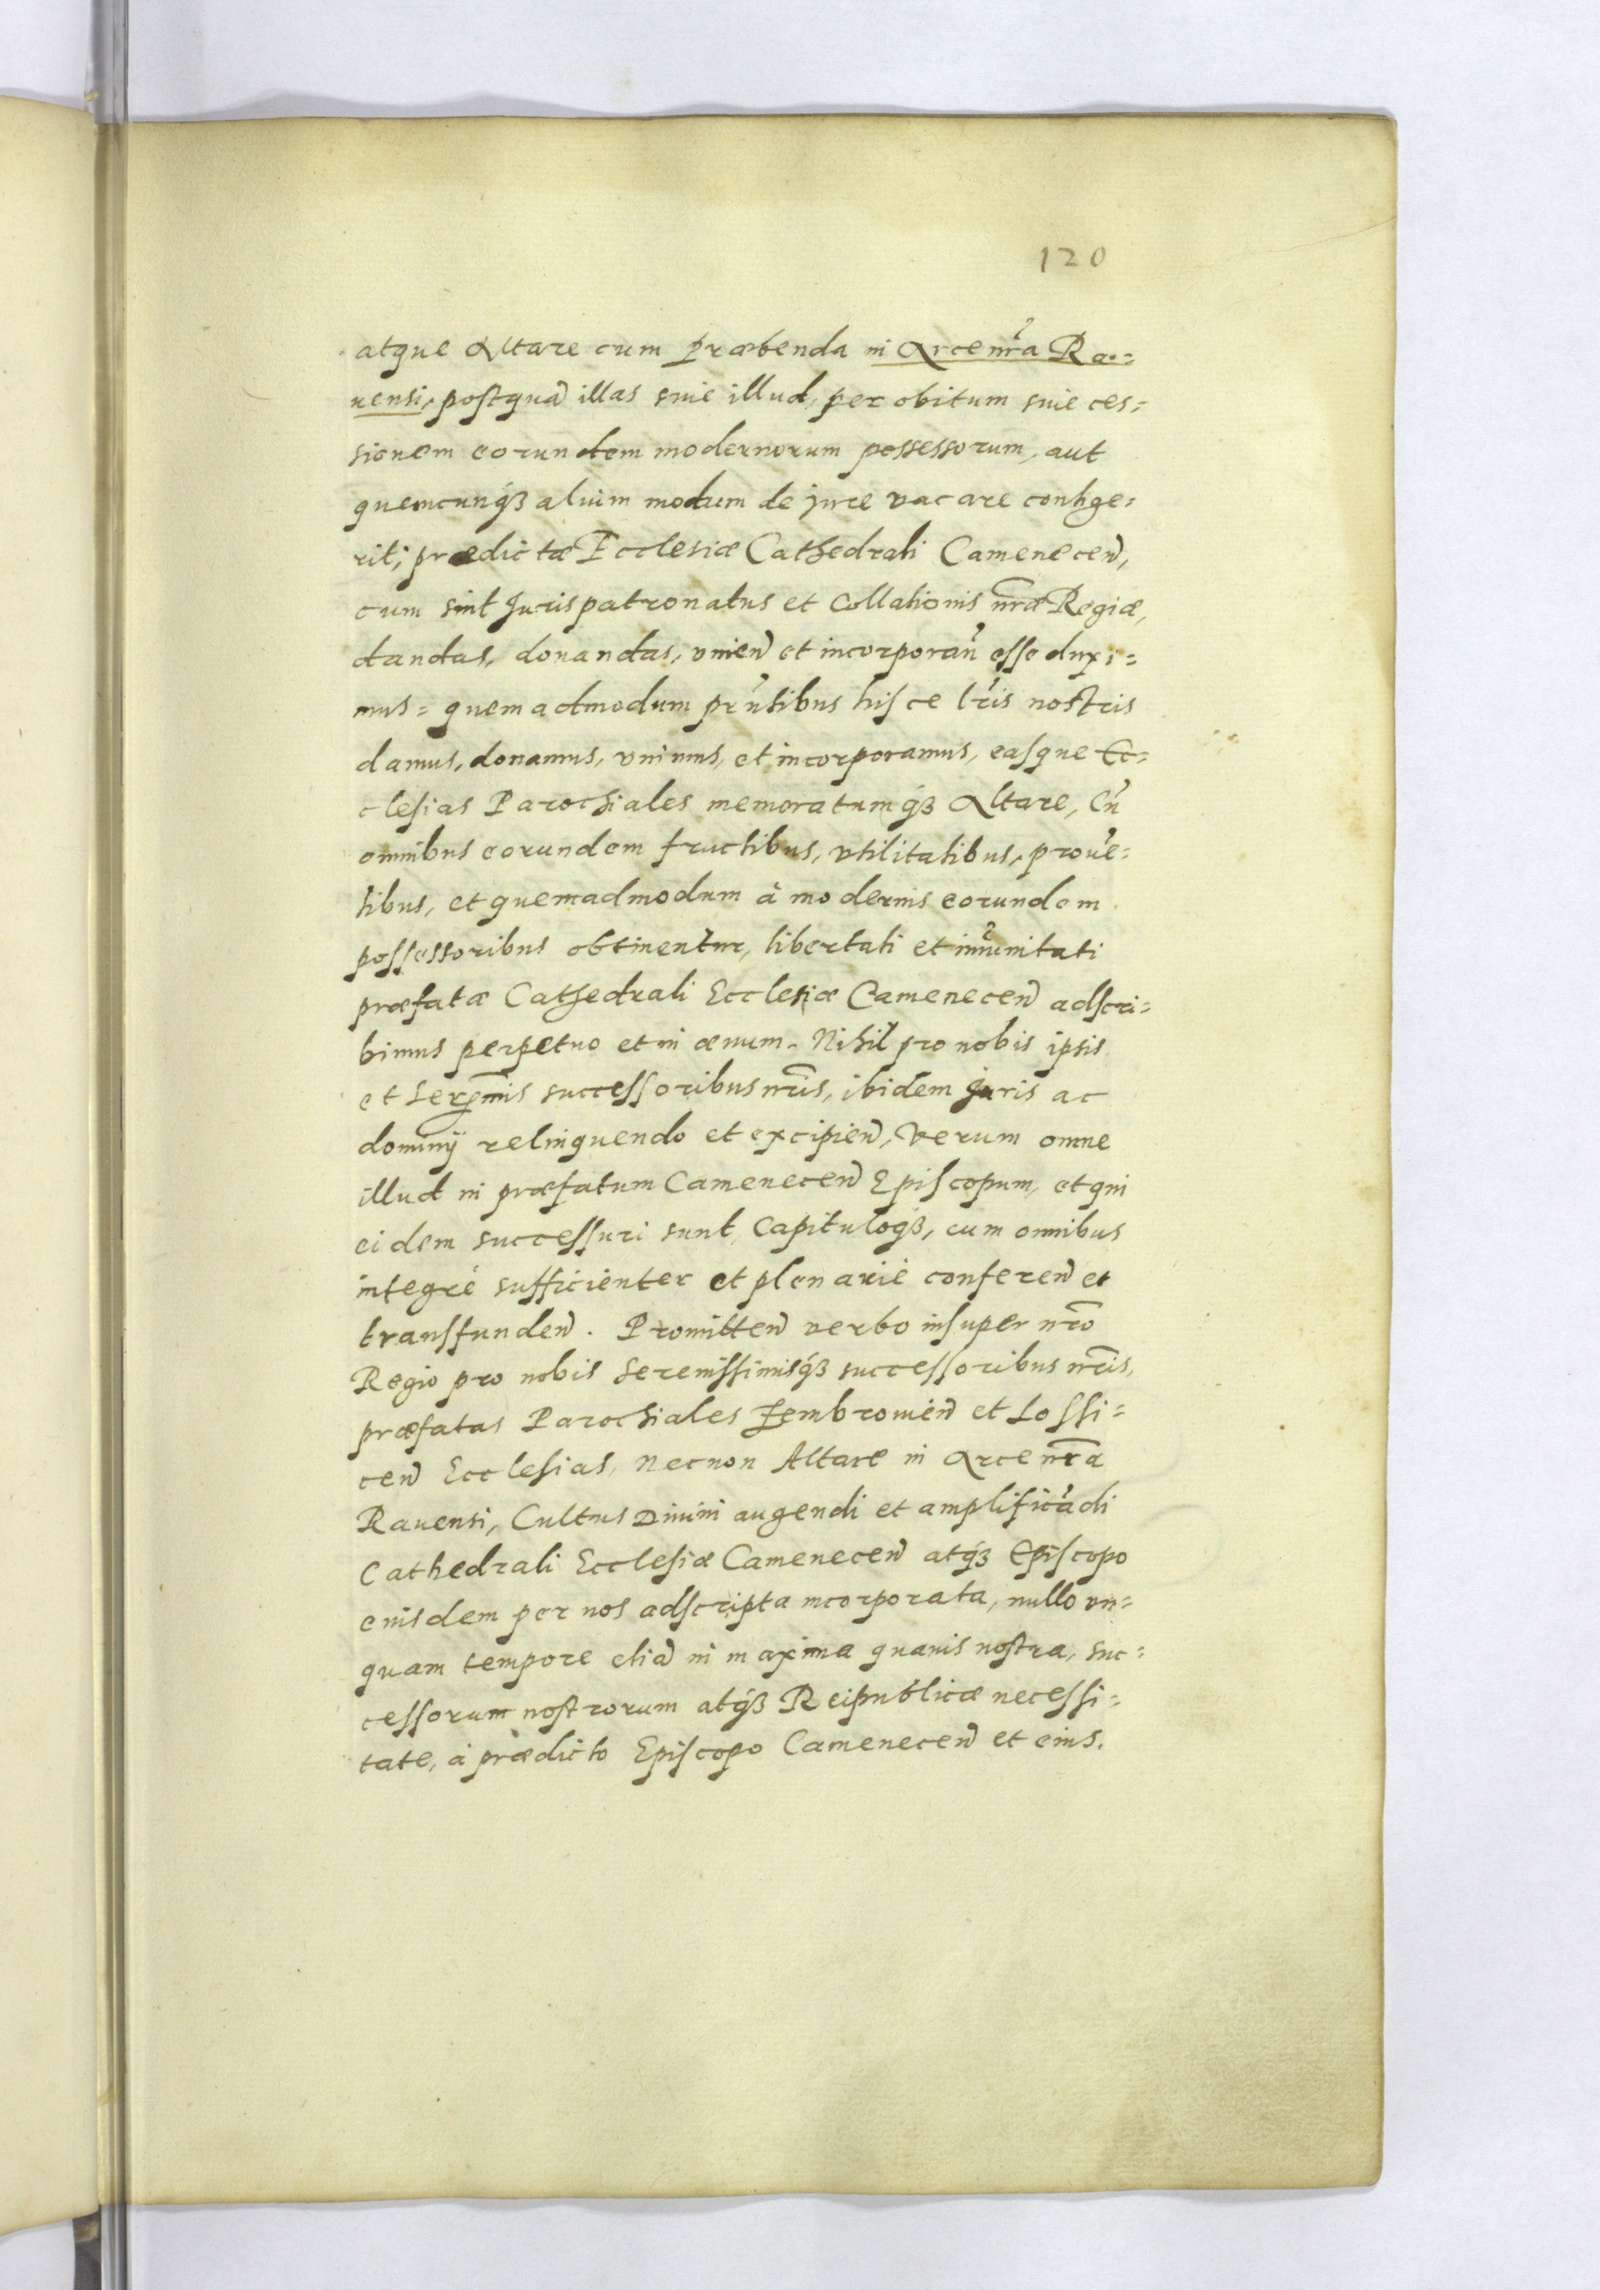 120
atque Altare cum præbenda in Arce nr̃a Ra=
uensi, postquã illas siue illud, per obitum siue ces=
sionem eorundem modernorum possessorum, aut
quemcunq́ꝫ alium modum de jure vacare contige=
rit; prædictæ Ecclesiæ Cathedrali Cameneceñ,
cum sint Juris patronatus et Collationis nr̃æ Regiæ,
dandas, donandas, vnieñ et incorporañ esse duxi=
mus = quemadmodum prñtibus hisce lr̃is nostris
damus, donamus, vnimus, et incorporamus, easque Ec=
clesias Parochiales memoratumq́ꝫ Altare, Cũ
omnibus eorundem fructibus, vtilitatibus, prouẽ=
tibus, et quemadmodum à modernis eorundem
possessoribus obtinentur, libertati et im̃unitati
præfatæ Cathedrali Ecclesiæ Cameneceñ adscri=
bimus perpetuo et in æuum. Nihil pro nobis ipsis
et Serẽmis successoribus nr̃is, ibidem Juris ac
dominij relinquendo et excipieñ, Verum omne
illud in præfatum Cameneceñ Episcopum, et qui
eidem successuri sunt, Capituloq́ꝫ, cum omnibus
integrè sufficienter et plenariè confereñ et
transfundeñ. Promitteñ verbo insuper nr̃o
Regio pro nobis Serenissimisq́ꝫ successoribus nr̃is,
præfatas Parochiales Zembrouieñ et Lossi=
ceñ Ecclesias, necnon Altare in Arce nr̃a
Rauensi, Cultus Diuini augendi et amplificãdi
Cathedrali Ecclesiæ Cameneceñ atq́ꝫ Episcopo
eiusdem per nos adscripta incorporata, nullo vn=
quam tempore etiã in maxima quauis nostra, suc=
cessorum nostrorum atq́ꝫ Reipublicæ necessi=
tate, à prædicto Episcopo Cameneceñ et eius.